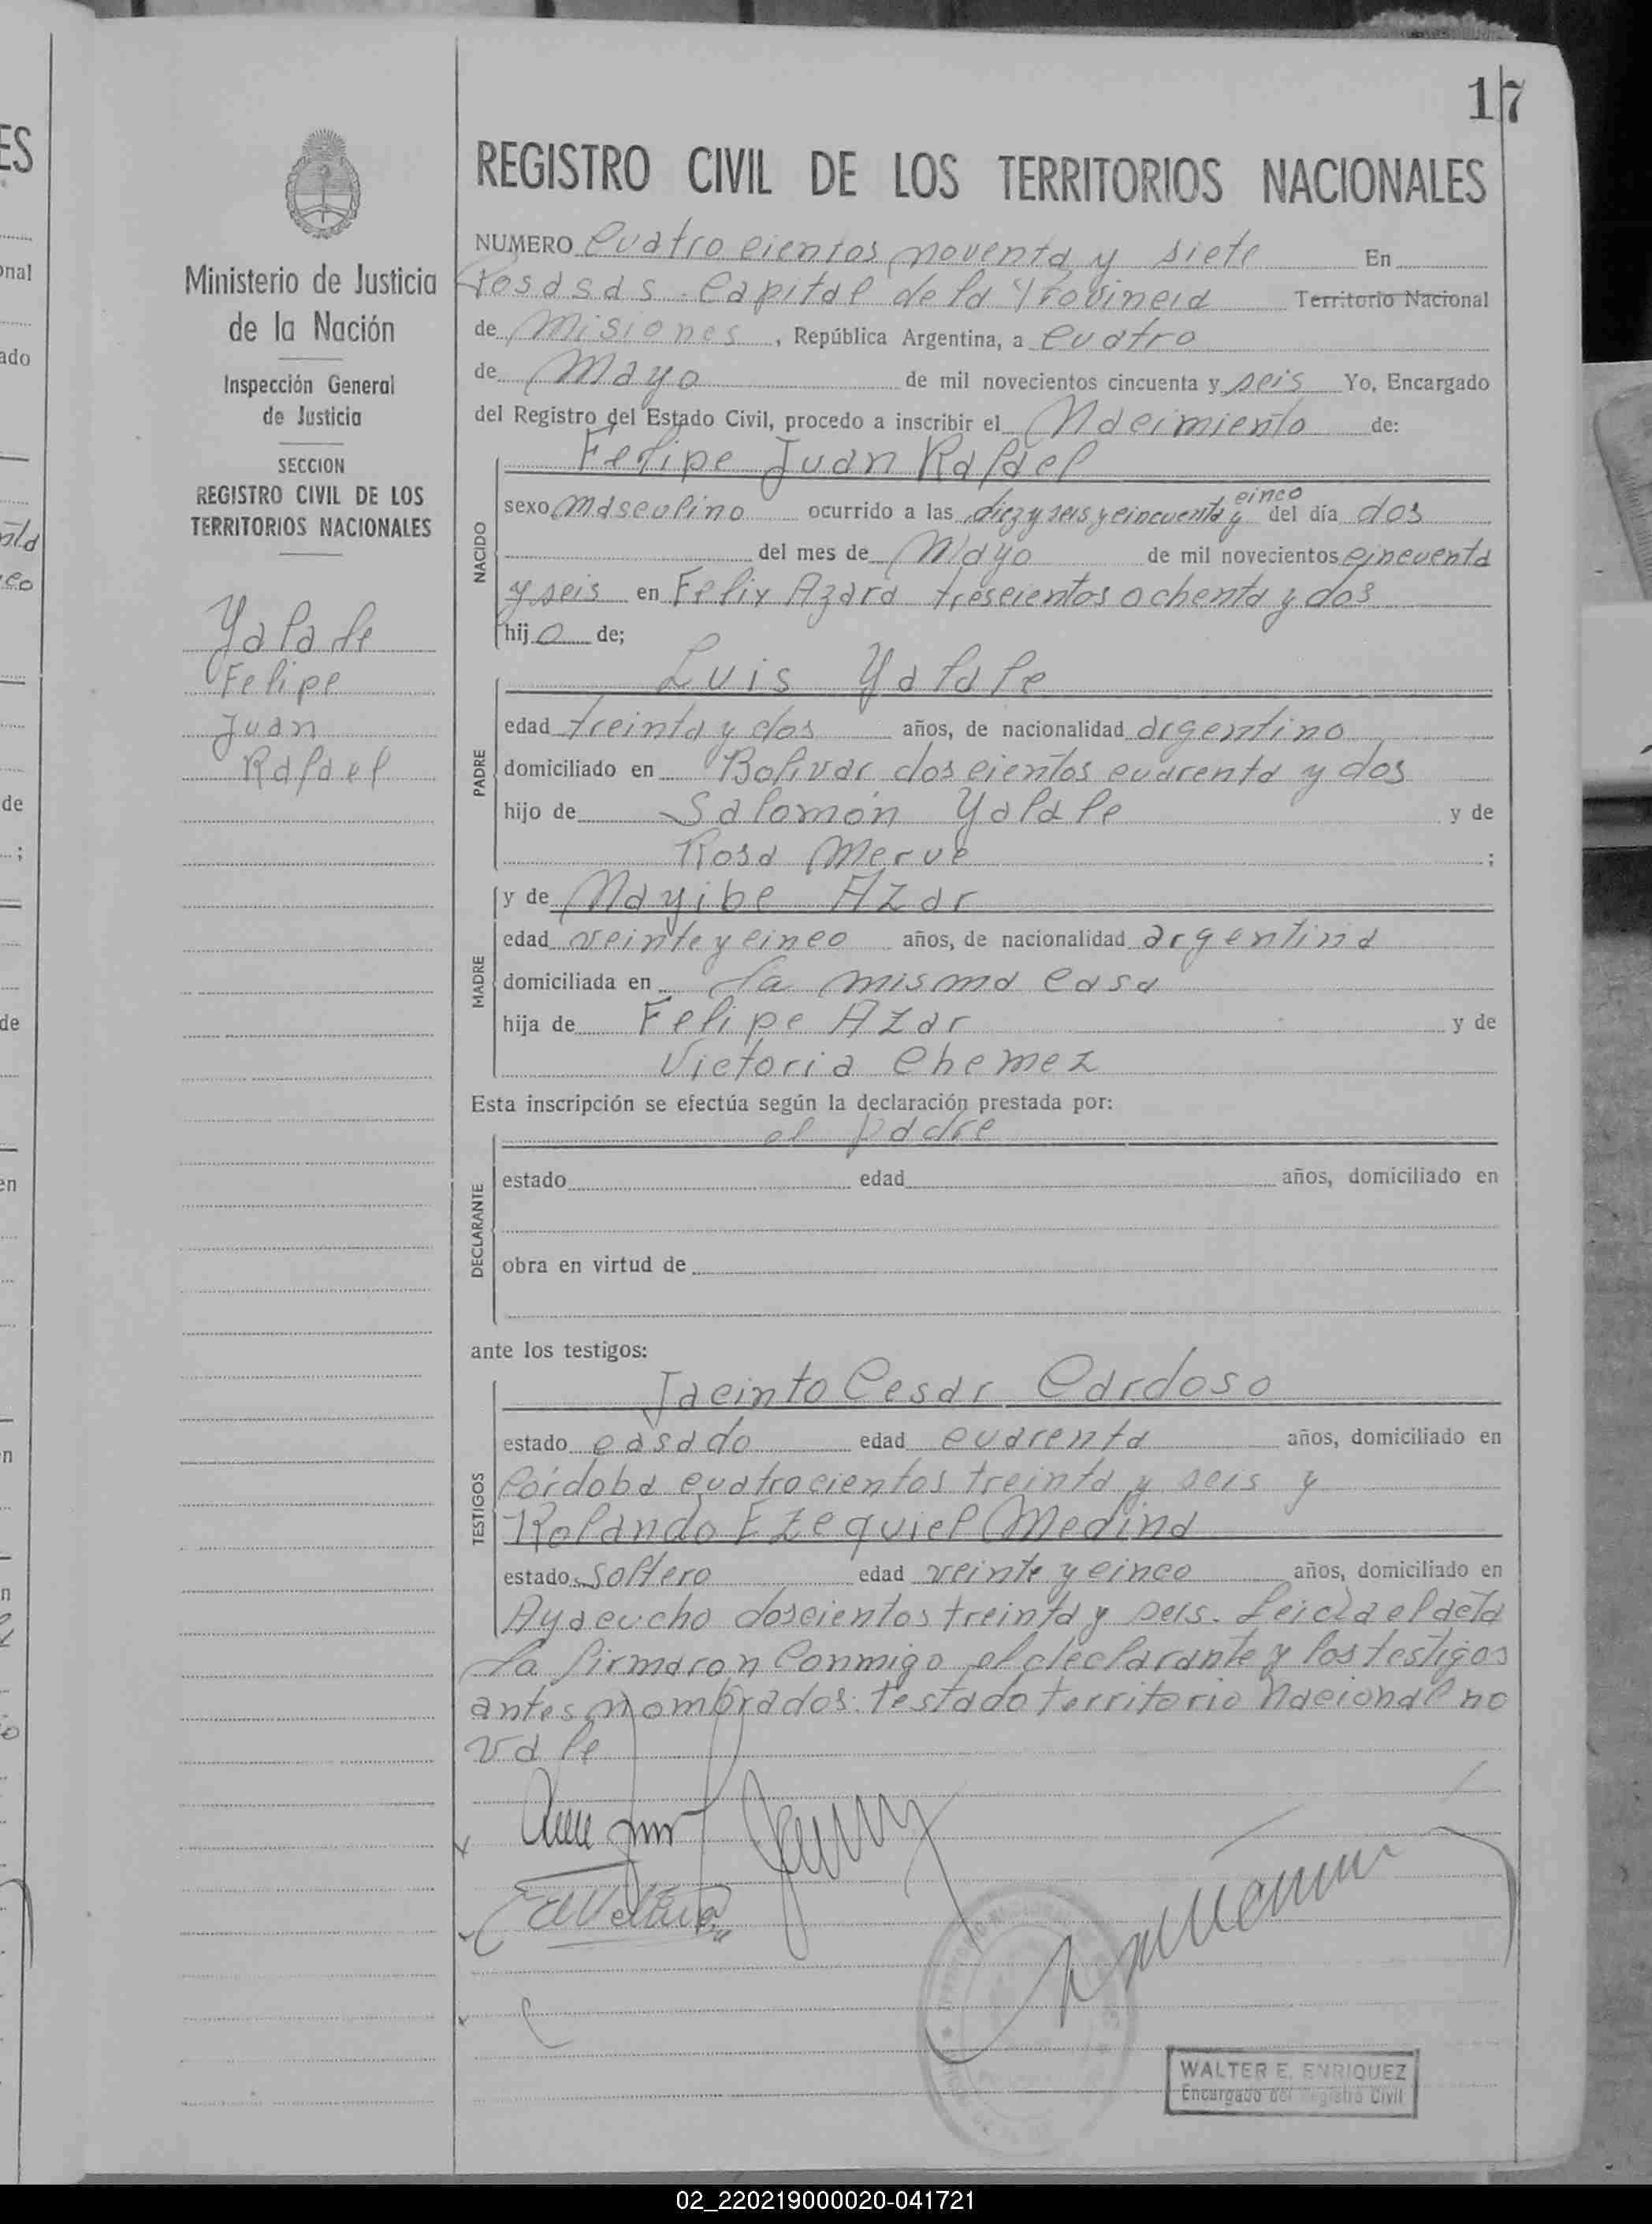 17
REGISTRO CIVIL DE LOS TERRITORIOS NACIONALES
NUMERO Cuatro cientos noventa y siete En
Posadas - Capital de la Provincia Territorio Nacional
de Misiones, República Argentina, a cuatro
de Mayo de mil novecientos cincuenta y seis Yo, Encargado
del Registro del Estado Civil, procedo a inscribir el Nacimiento de:
NACIDO
Felipe Juan Rafael
cinco
sexo masculino ocurrido a las diez y seis y cincuenta y del día dos
del mes de Mayo de mil novecientos cincuenta
y seis en Felix Azara trescientos ochenta y dos
hijo de;
PADRE
Luis Yalale
edad treinta y dos años, de nacionalidad argentino
domiciliado en Bolivar dos cientos cuarenta y dos
hijo de Salomón Yalale y de
Rosa Merve ;
MADRE
y de Mayibe Azar
edad veinte y cinco años, de nacionalidad argentina
domiciliada en la misma casa
hija de Felipe Azar y de
Victoria Chemez
Esta inscripción se efectúa según la declaración prestada por:
DECLARANTE
el padre
estado edad años, domiciliado en
obra en virtud de
ante los testigos:
TESTIGOS
Jacinto Cesar Cardoso
estado casado edad cuarenta años, domiciliado en
Córdoba cuatrocientos treinta y seis y
Rolando Ezequiel Medina
estado soltero edad veinte y cinco años, domiciliado en
Ayacucho doscientos treinta y seis. Leida el acta
la firmaron conmigo el declarante y los testigos
antes nombrados: testado territorio nacional no
vale
WALTER E. ENRIQUEZ
Encargado del Registro Civil
Ministerio de Justicia
de la Nación
Inspección General
de Justicia
SECCION
REGISTRO CIVIL DE LOS
TERRITORIOS NACIONALES
Yalale
Felipe
Juan
Rafael
02_220219000020-041721